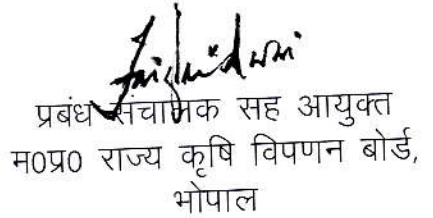 प्रबंध संचालक सह आयुक्त
म0प्र0 राज्य कृषि विपणन बोर्ड,
भोपाल